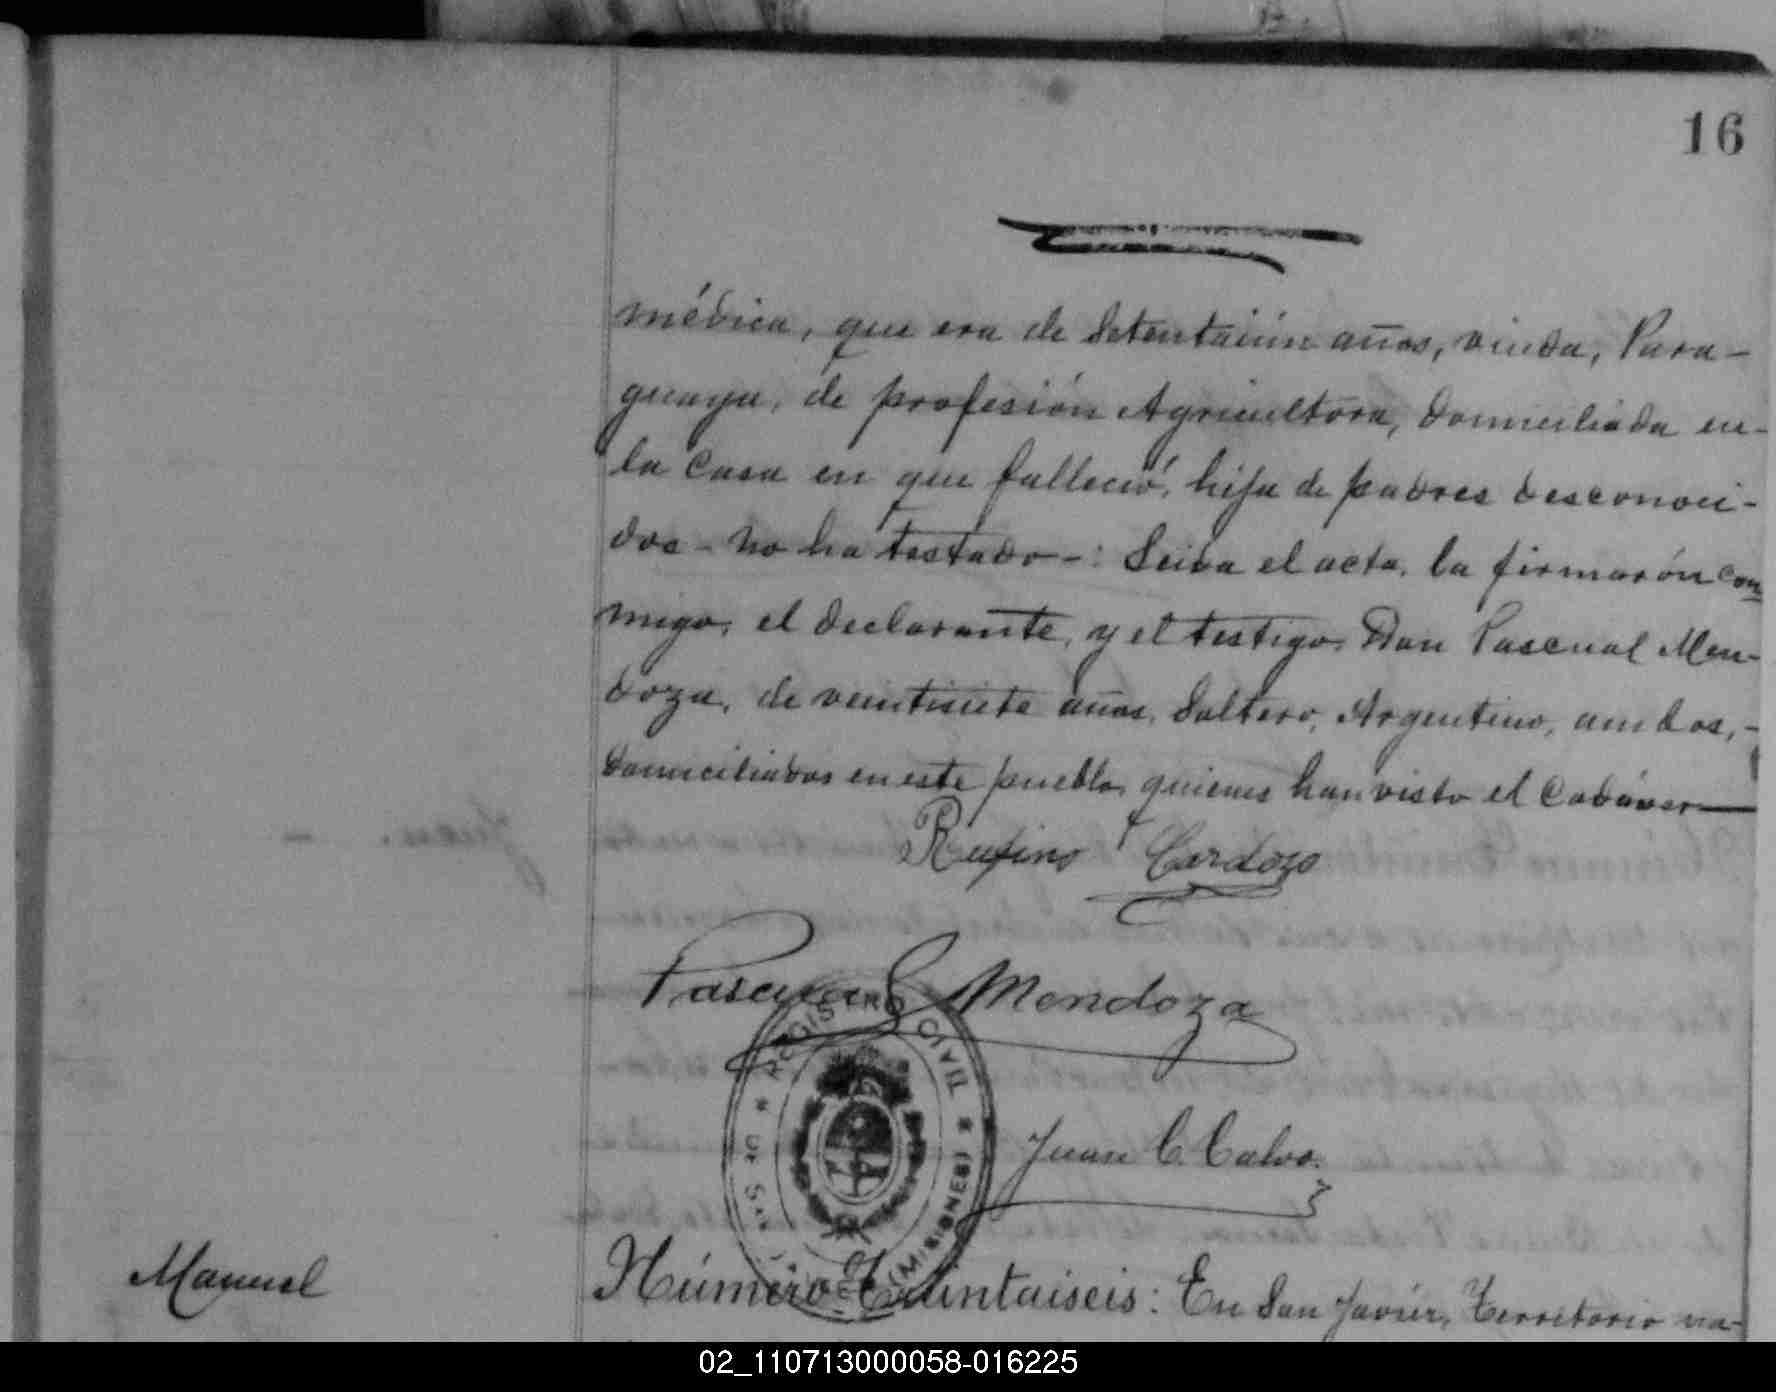 16
médica, que era de Setentaiún años, viuda, Para-
guaya, de profesión Agricultora, domiciliada en-
la Casa en que falleció, hija de padres desconoci-
dos - no ha testado -: Leida el acta, la firmarón con
migo, el declarante, y el testigo Don Pascual Men-
doza, de veintisiete años, Soltero, Argentino, ambos, -
domiciliados en este pueblo, quienes han visto el Cadáver
Rufino Cardozo
Pascual Mendoza
REGISTRO CIVIL
(MISIONES)
Juan C. Calvo.
Manuel
Número Trintaiseis: En San Javier, Territorio na-
02_110713000058-016225